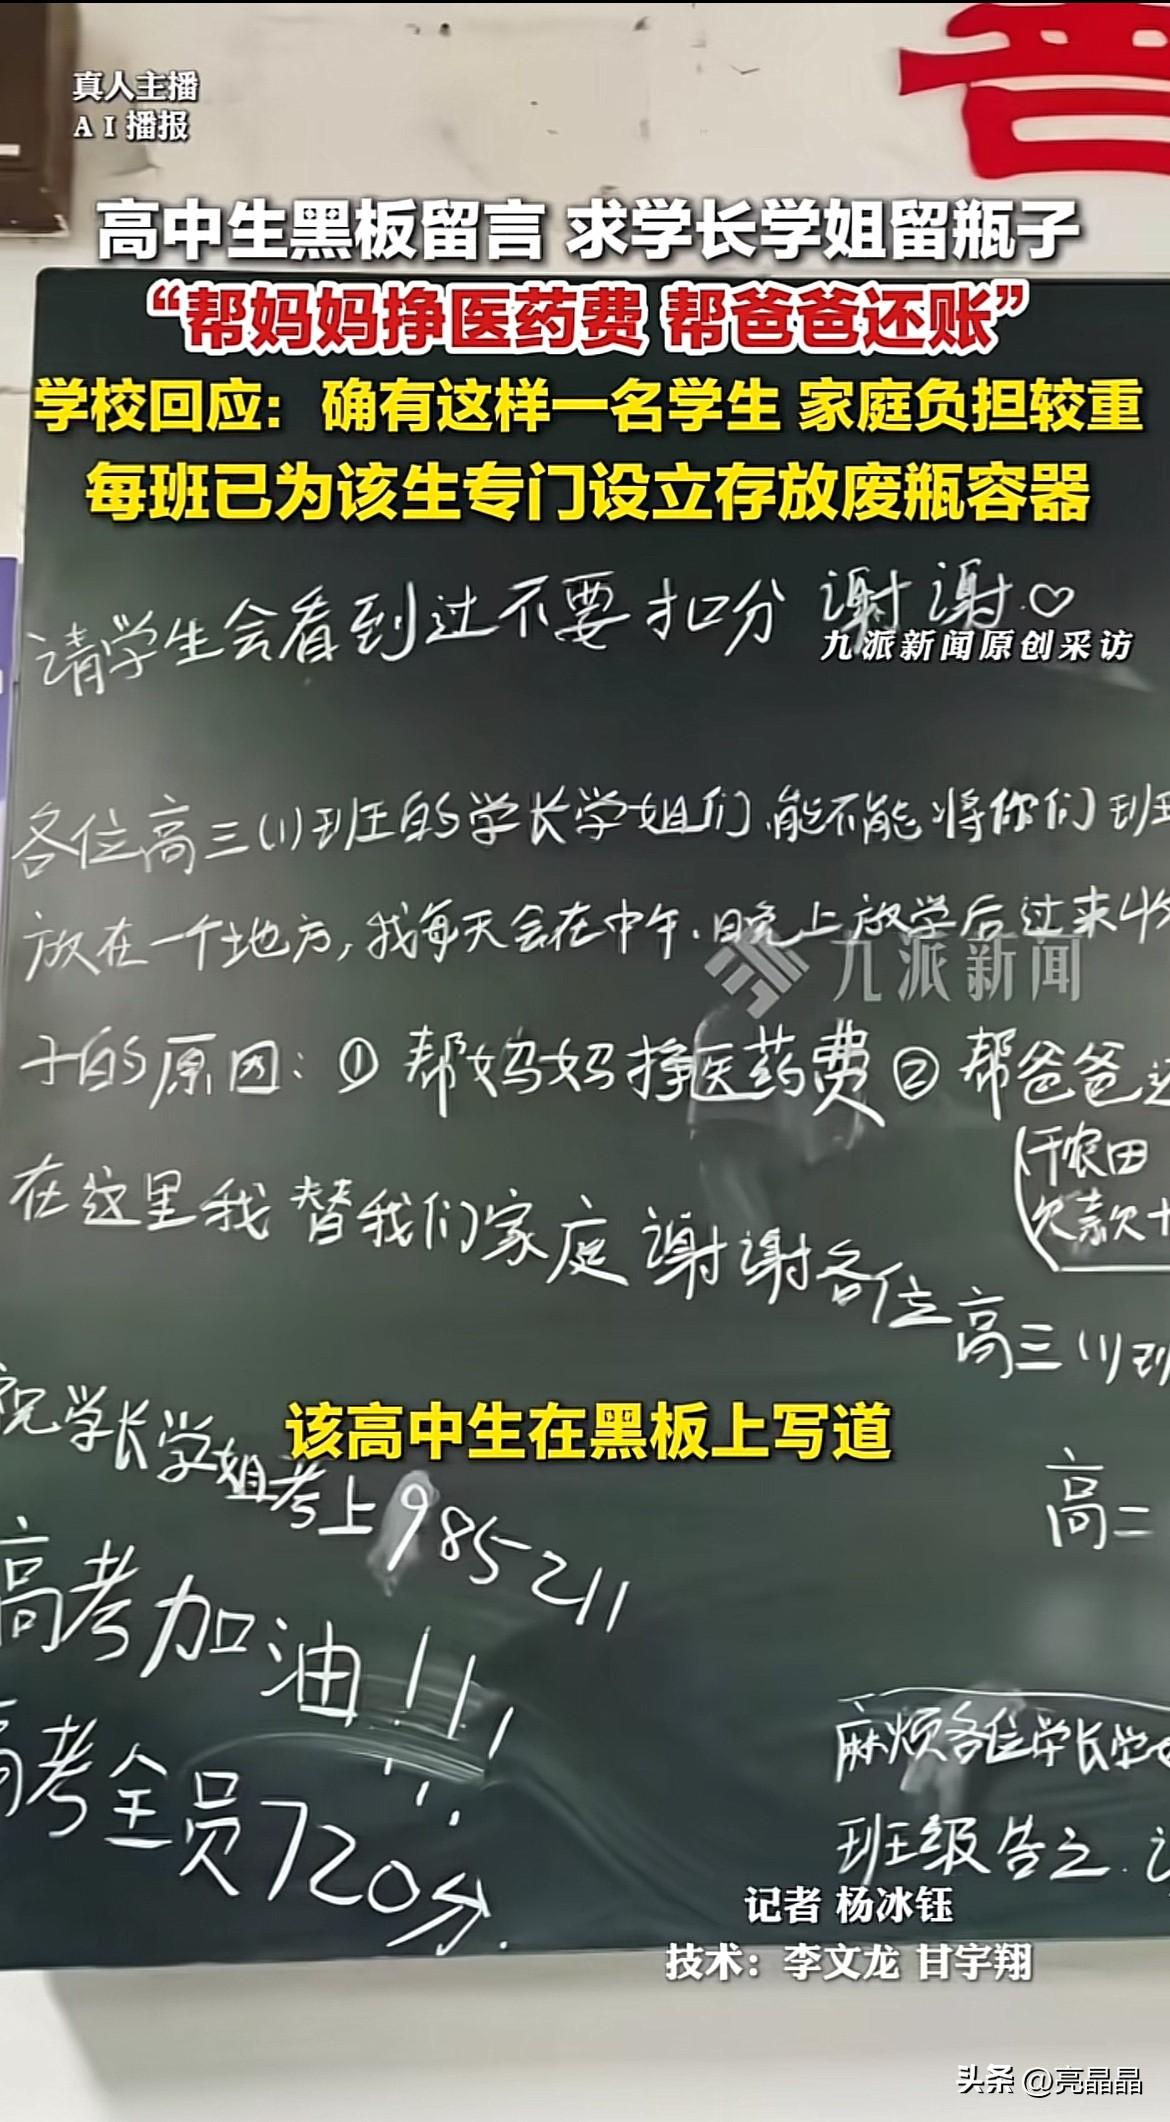 真人主播
AI播报
晋
高中生黑板留言 求学长学姐留瓶子
“帮妈妈挣医药费 帮爸爸还账”
学校回应：确有这样一名学生 家庭负担较重
每班已为该生专门设立存放废瓶容器
请学生会看到过不要扣分 谢谢♡
九派新闻原创采访
各位高三(1)班的学长学姐们,能不能将你们班
放在一个地方,我每天会在中午、晚上放学后过来收
九派新闻
子的原因:① 帮妈妈挣医药费 ② 帮爸爸还
(干农田
欠款欠十
在这里我替我们家庭谢谢各位高三(1)班
祝学长学姐考上985 211
该高中生在黑板上写道
高二
高考加油!!!
高考全员720分.
麻烦各位学长学姐
班级告之.
记者 杨冰钰
技术：李文龙 甘宇翔
头条 @亮晶晶